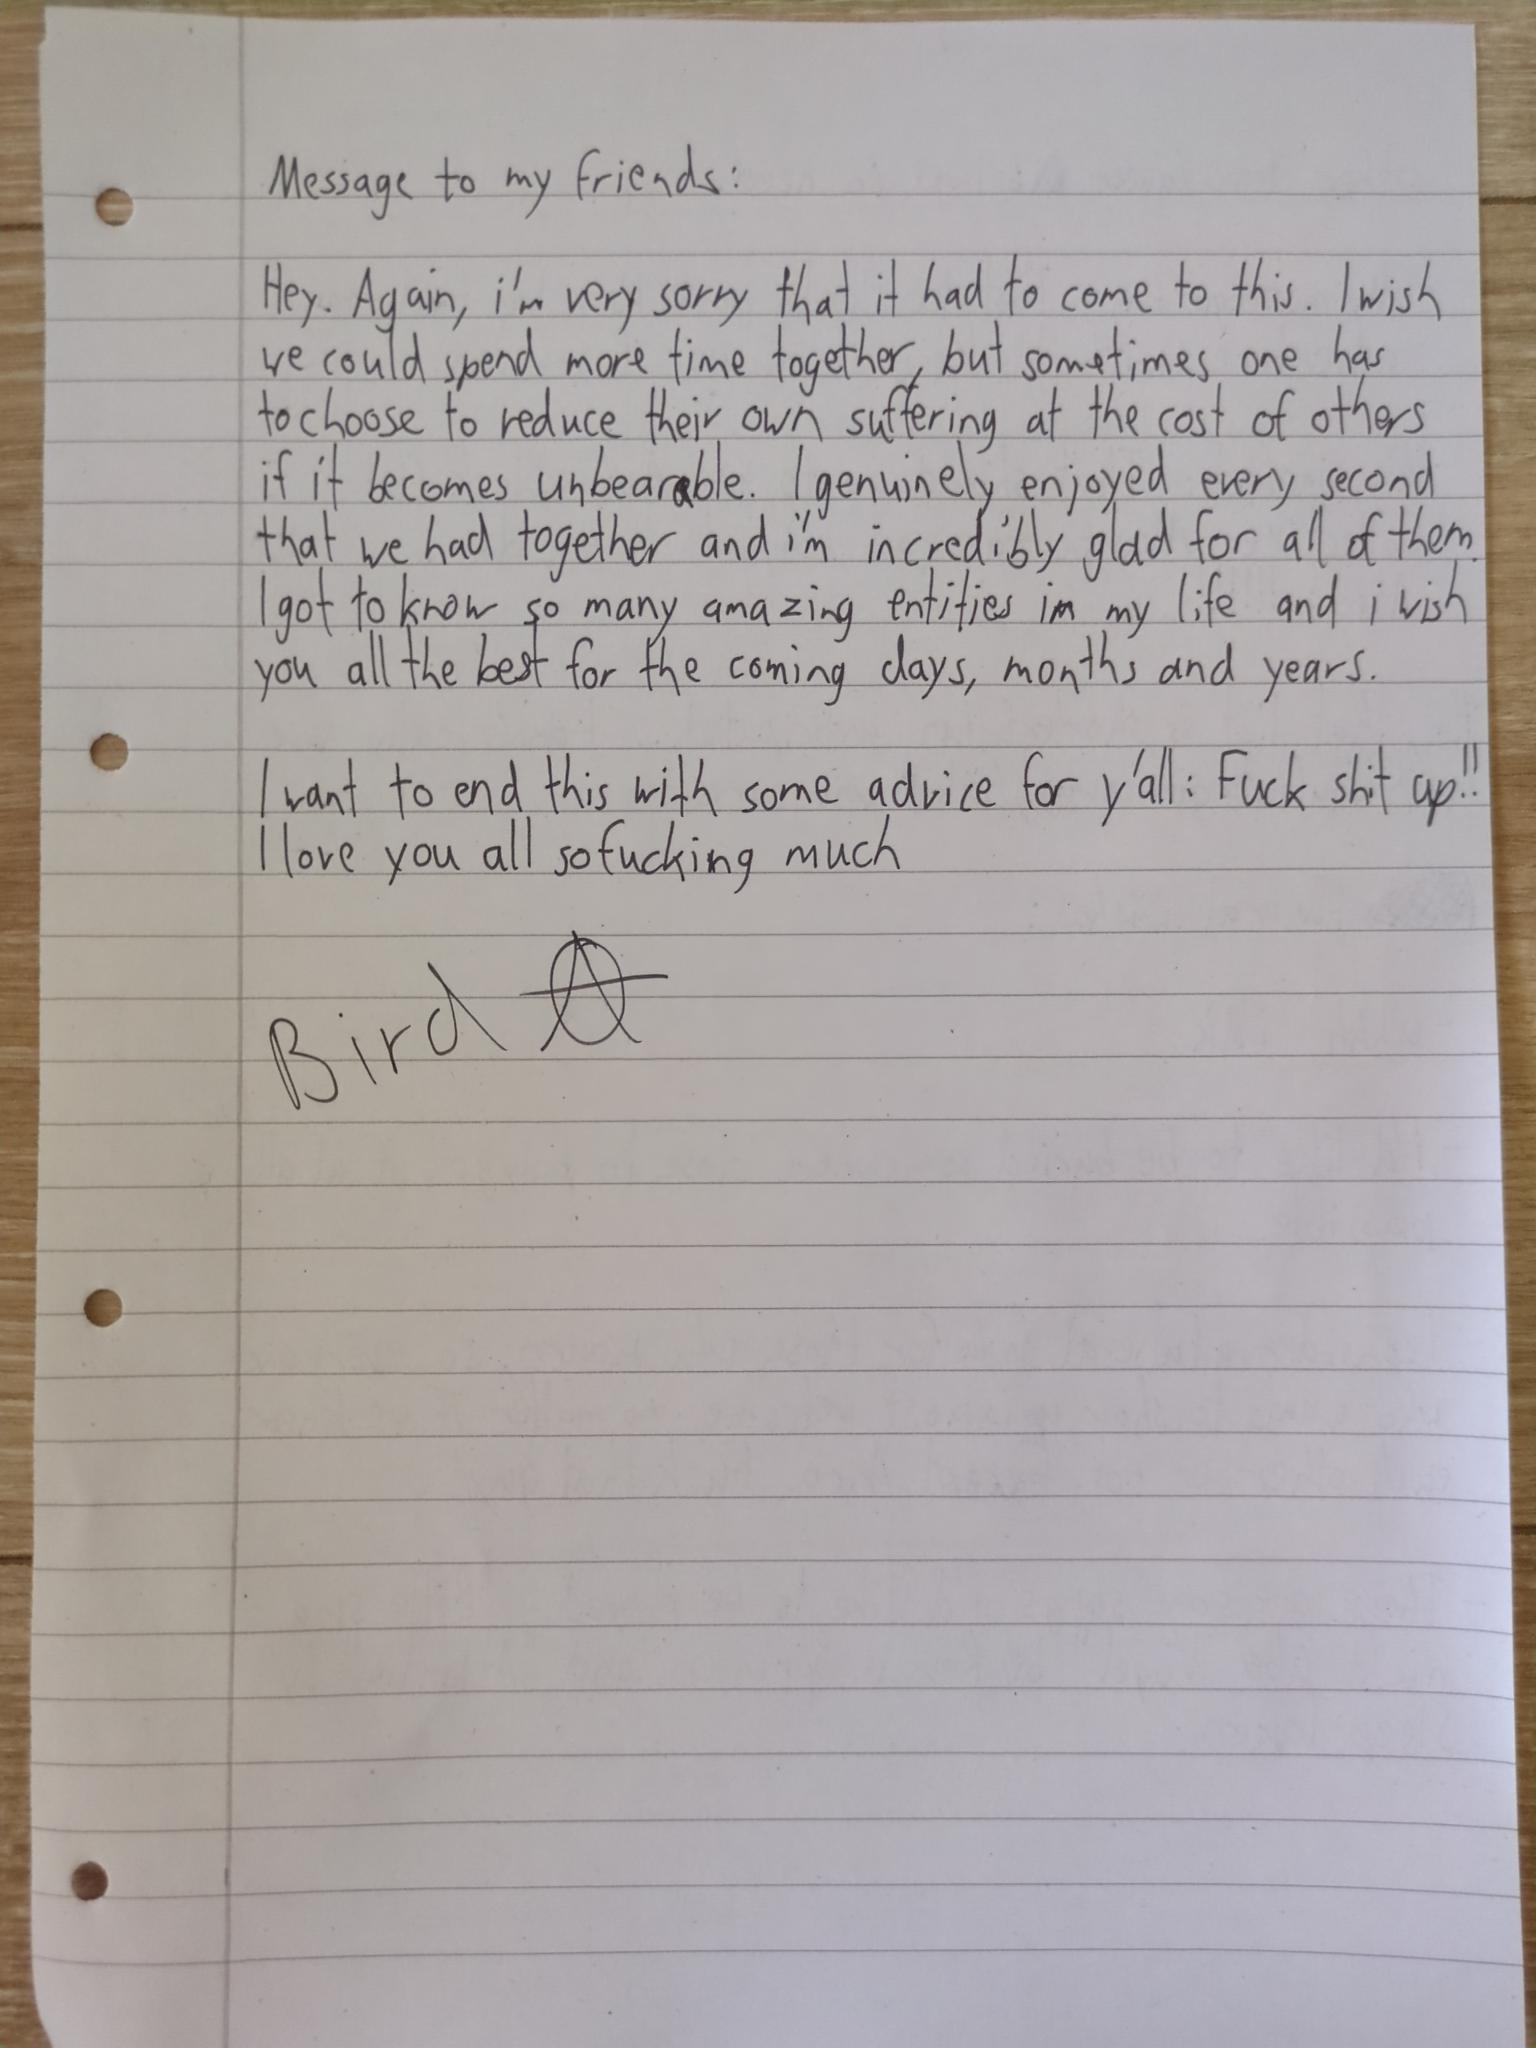 Message to my friends:
Hey. Again, i'm very sorry that it had to come to this. I wish
we could spend more time together, but sometimes one has
to choose to reduce their own suffering at the cost of others
if it becomes unbearable. I genuinely enjoyed every second
that we had together and i'm incredibly glad for all of them.
I got to know so many amazing entities in my life and i wish
you all the best for the coming days, months and years.
I want to end this with some advice for y'all: Fuck shit up!!
I love you all so fucking much
Bird Ⓐ